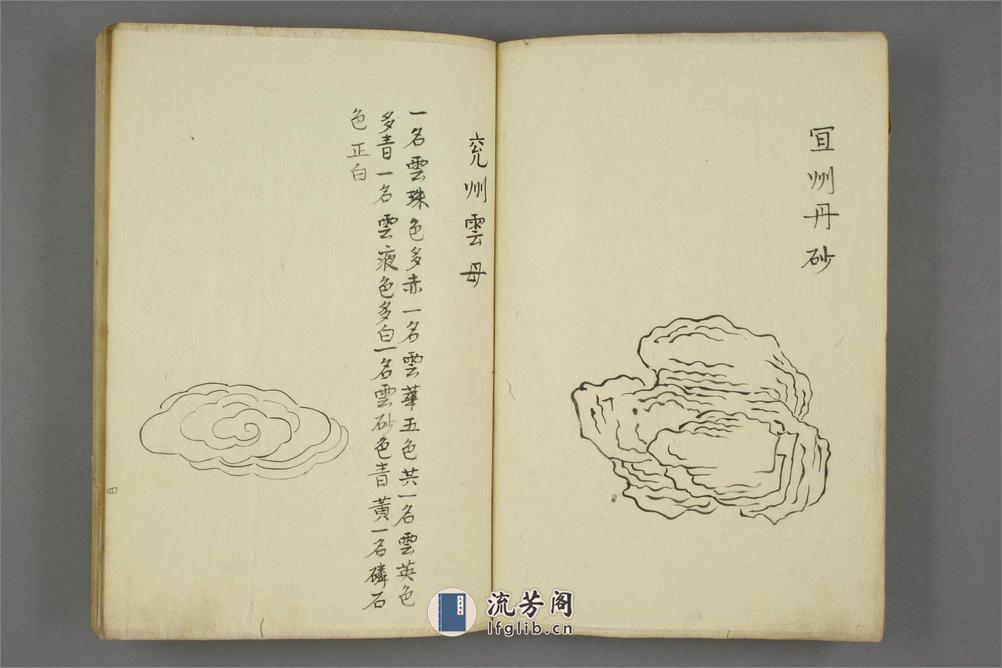 宜州丹砂
兖州雲母
一名雲珠色多赤一名雲華五色共一名雲英色
多青一名雲液色多白一名雲砂色青黃一名磷石
色正白
四
流芳阁
lfglib.cn